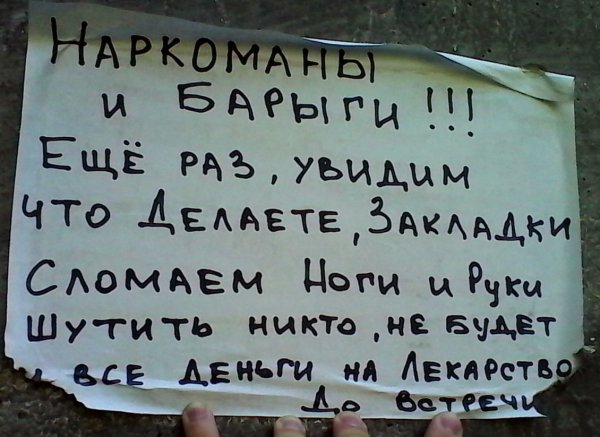 НАРКОМАНЫ
и БАРЫГИ!!!
ЕЩЁ РАЗ, УВИДИМ
ЧТО ДЕЛАЕТЕ, ЗАКЛАДКИ
СЛОМАЕМ Ноги и Руки
ШУТИТЬ НИКТО, НЕ БУДЕТ
ВСЕ ДЕНЬГИ НА ЛЕКАРСТВО
До ВСТРЕЧИ